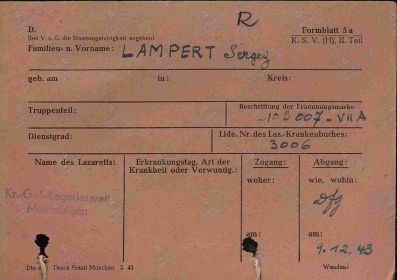 R
D. Formblatt 5a
(bei V. u. G. die Staatsangehörigkeit angeben) K. S. V. (H), II. Teil
Familien- u. Vorname: LAMPERT Sergej
geb. am in: Kreis:
Truppenteil: Beschriftung der Erkennungsmarke
103007-VII A
Dienstgrad: Lfde. Nr. des Laz.-Krankenbuches:
3006
Name des Lazaretts: Erkrankungstag, Art der Zugang: Abgang:
Krankheit oder Verwundg.: woher: wie, wohin:
Kr.-Gef.-Lagerlazarett Dfg
Memmingen
am: am:
9.12.43
Druck Franzl München 2. 43 Wenden!